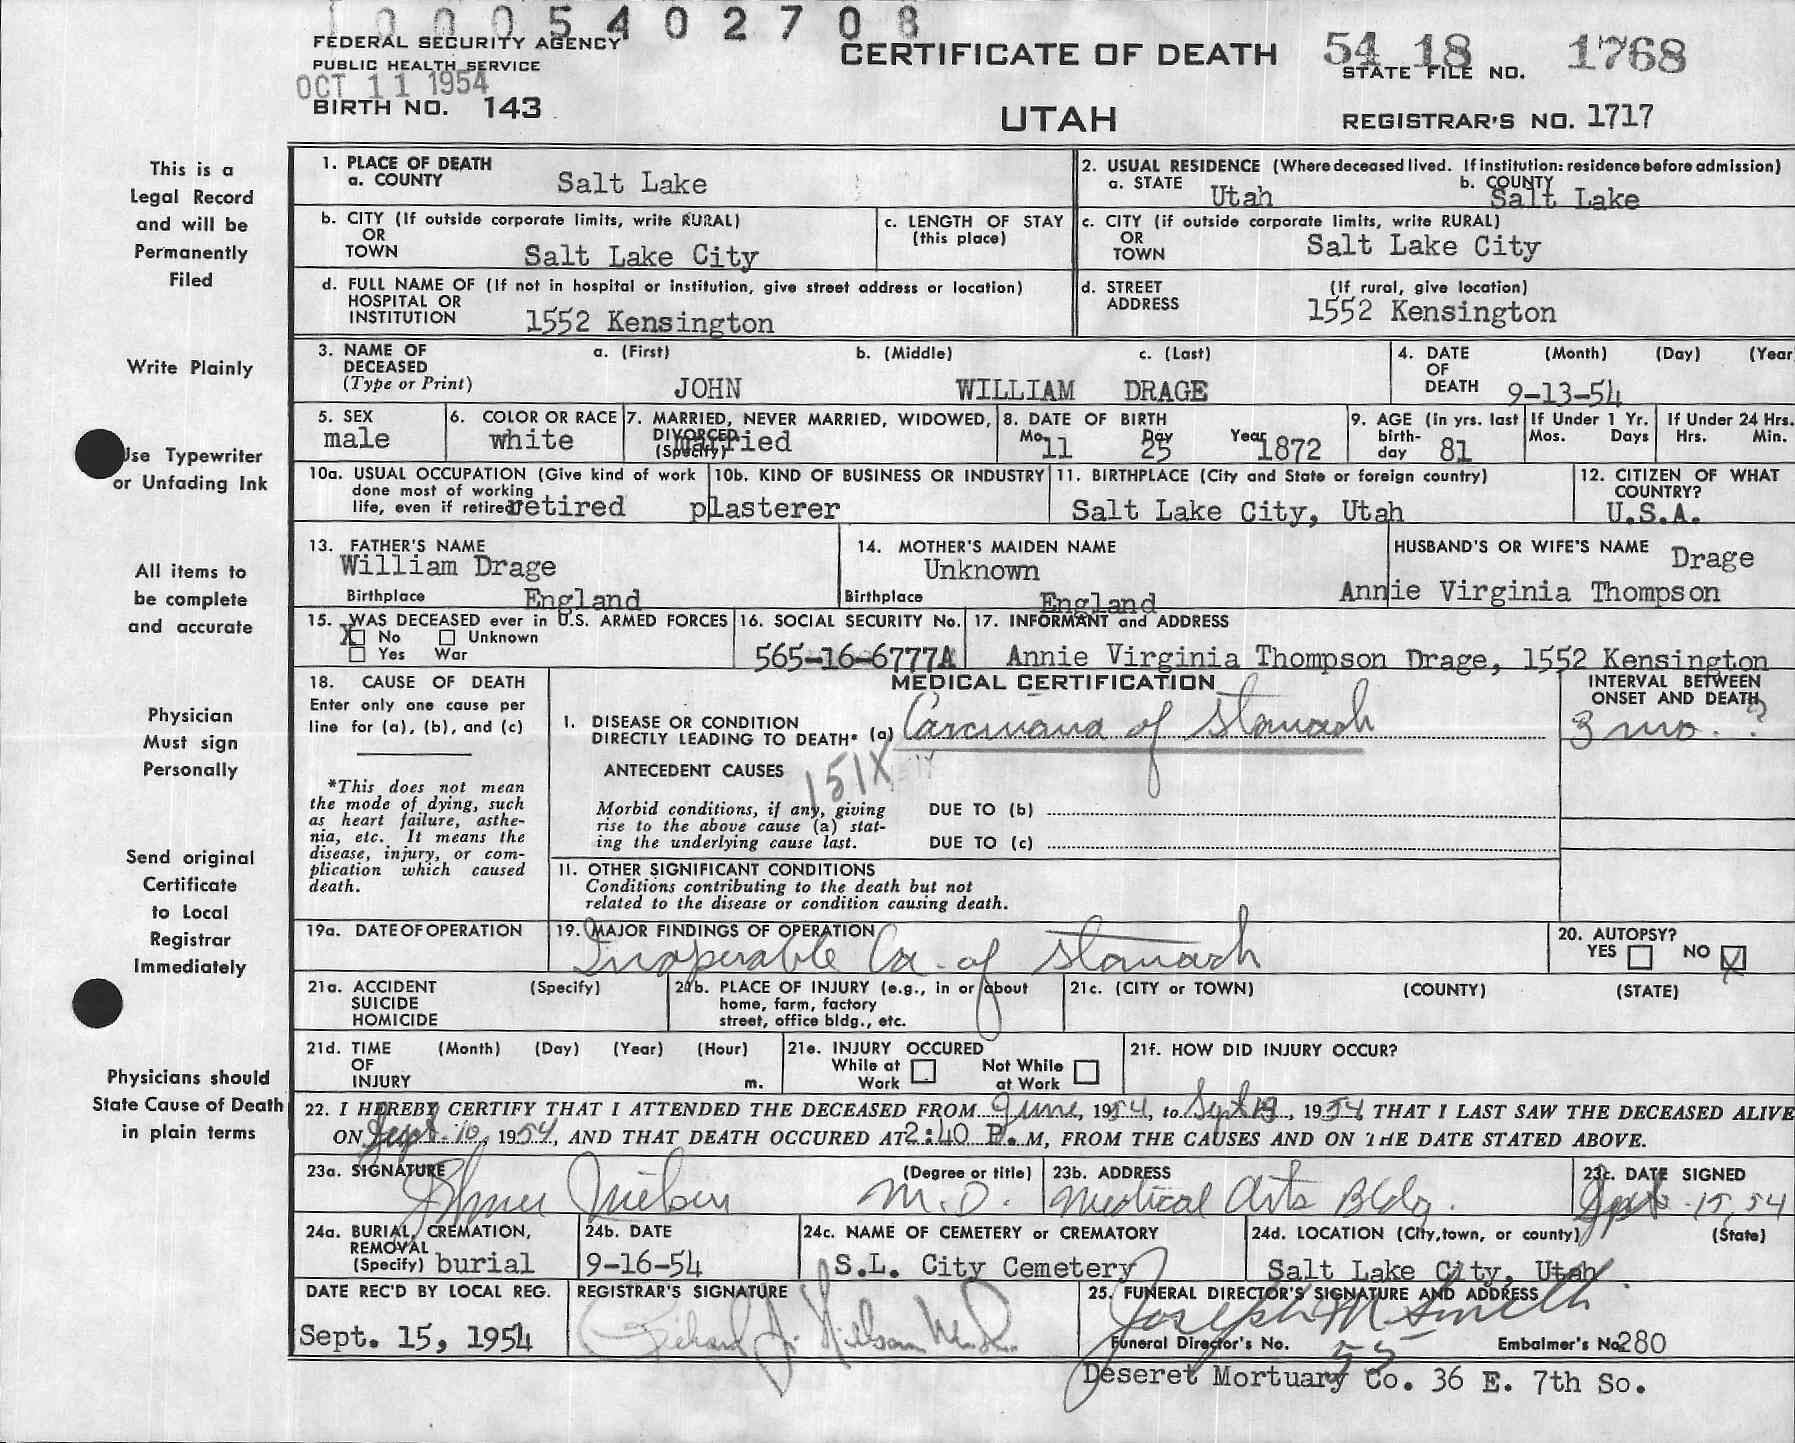 1 0 0 0 5 4 0 2 7 0 8
FEDERAL SECURITY AGENCY
PUBLIC HEALTH SERVICE
OCT 11 1954
BIRTH NO. 143
CERTIFICATE OF DEATH
UTAH
54 18 1768
STATE FILE NO.
REGISTRAR'S NO. 1717
This is a
Legal Record
and will be
Permanently
Filed
Write Plainly
Use Typewriter
or Unfading Ink
All items to
be complete
and accurate
Physician
Must sign
Personally
Send original
Certificate
to Local
Registrar
Immediately
Physicians should
State Cause of Death
in plain terms
1. PLACE OF DEATH
a. COUNTY Salt Lake
2. USUAL RESIDENCE (Where deceased lived. If institution: residence before admission)
a. STATE Utah b. COUNTY Salt Lake
b. CITY (If outside corporate limits, write RURAL)
OR
TOWN Salt Lake City
c. LENGTH OF STAY
(this place)
c. CITY (if outside corporate limits, write RURAL)
OR
TOWN Salt Lake City
d. FULL NAME OF (If not in hospital or institution, give street address or location)
HOSPITAL OR
INSTITUTION 1552 Kensington
d. STREET (If rural, give location)
ADDRESS 1552 Kensington
3. NAME OF a. (First) b. (Middle) c. (Last)
DECEASED
(Type or Print) JOHN WILLIAM DRAGE
4. DATE (Month) (Day) (Year
OF
DEATH 9-13-54
5. SEX
male
6. COLOR OR RACE
white
7. MARRIED, NEVER MARRIED, WIDOWED,
DIVORCED married
(Specify)
8. DATE OF BIRTH
Mo. 11 Day 25 Year 1872
9. AGE (in yrs. last
birth-
day 81
If Under 1 Yr.
Mos. Days
If Under 24 Hrs.
Hrs. Min.
10a. USUAL OCCUPATION (Give kind of work
done most of working
life, even if retired retired plasterer
10b. KIND OF BUSINESS OR INDUSTRY
11. BIRTHPLACE (City and State or foreign country)
Salt Lake City, Utah
12. CITIZEN OF WHAT
COUNTRY?
U.S.A.
13. FATHER'S NAME
William Drage
Birthplace England
14. MOTHER'S MAIDEN NAME
Unknown
Birthplace England
HUSBAND'S OR WIFE'S NAME Drage
Annie Virginia Thompson
15. WAS DECEASED ever in U.S. ARMED FORCES
X No Unknown
Yes War
16. SOCIAL SECURITY No.
565-16-6777A
17. INFORMANT and ADDRESS
Annie Virginia Thompson Drage, 1552 Kensington
18. CAUSE OF DEATH
Enter only one cause per
line for (a), (b), and (c)
*This does not mean
the mode of dying, such
as heart failure, asthe-
nia, etc. It means the
disease, injury, or com-
plication which caused
death.
MEDICAL CERTIFICATION
INTERVAL BETWEEN
ONSET AND DEATH
3 mo. ?
I. DISEASE OR CONDITION
DIRECTLY LEADING TO DEATH* (a) Carcinoma of Stomach
ANTECEDENT CAUSES 151X
Morbid conditions, if any, giving
rise to the above cause (a) stat-
ing the underlying cause last.
DUE TO (b)
DUE TO (c)
II. OTHER SIGNIFICANT CONDITIONS
Conditions contributing to the death but not
related to the disease or condition causing death.
19a. DATE OF OPERATION
19. MAJOR FINDINGS OF OPERATION
Inoperable Ca. of Stomach
20. AUTOPSY?
YES NO X
21a. ACCIDENT (Specify)
SUICIDE
HOMICIDE
21b. PLACE OF INJURY (e.g., in or about
home, farm, factory
street, office bldg., etc.
21c. (CITY or TOWN) (COUNTY) (STATE)
21d. TIME (Month) (Day) (Year) (Hour)
OF
INJURY m.
21e. INJURY OCCURED
While at Work Not While at Work
21f. HOW DID INJURY OCCUR?
22. I HEREBY CERTIFY THAT I ATTENDED THE DECEASED FROM June, 1954, to Sept 13, 1954 THAT I LAST SAW THE DECEASED ALIVE
ON Sept. 10, 1954, AND THAT DEATH OCCURED AT 2:40 P. M, FROM THE CAUSES AND ON THE DATE STATED ABOVE.
23a. SIGNATURE (Degree or title)
Nielsen M.D.
23b. ADDRESS
Medical Arts Bldg.
23c. DATE SIGNED
Sept. 15, 54
24a. BURIAL, CREMATION,
REMOVAL
(Specify) burial
24b. DATE
9-16-54
24c. NAME OF CEMETERY or CREMATORY
S.L. City Cemetery
24d. LOCATION (City, town, or county) (State)
Salt Lake City, Utah
DATE REC'D BY LOCAL REG.
Sept. 15, 1954
REGISTRAR'S SIGNATURE
Richard J. Nielsen
25. FUNERAL DIRECTOR'S SIGNATURE AND ADDRESS
Joseph M Smith
Funeral Director's No. 55 Embalmer's No 280
Deseret Mortuary Co. 36 E. 7th So.